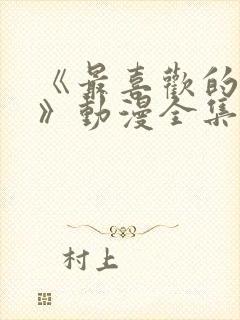 《最喜歡的
》動漫全集
村上